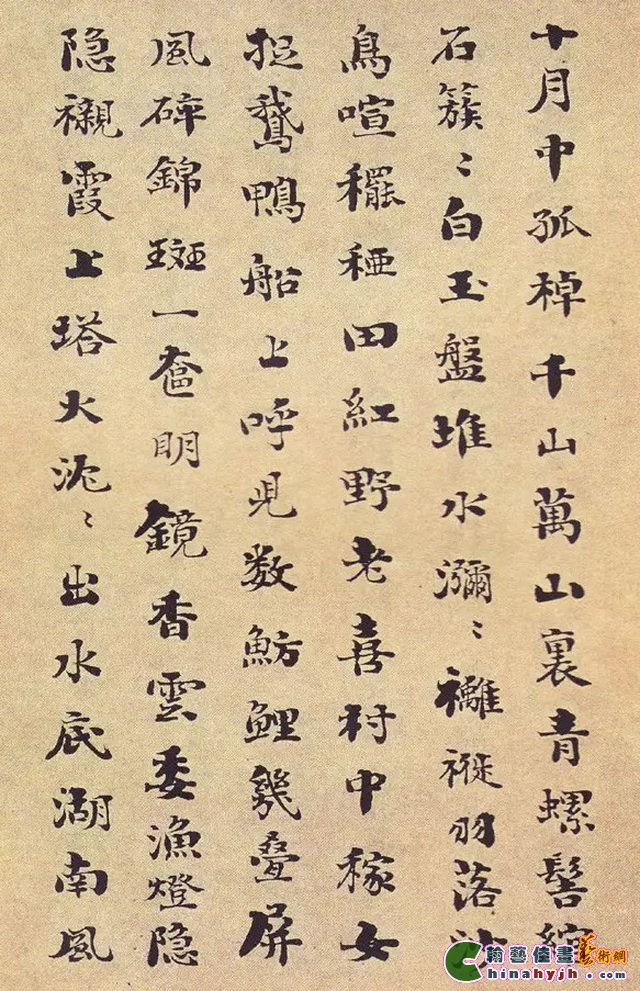 十月中孤棹千山萬山裏青螺髻綰
石簇〻白玉盤堆水瀰〻䙰褷羽落沙
鳥喧䆉稏田紅野老喜村中稼女
捉鵝鴨船上呼児数魴鯉幾疊屏
風碎錦斑一奩明鏡香雲委漁燈隐
隐襯霞上塔火沈〻出水底湖南風
翰藝佳畫藝術網
Chinahyjh.com